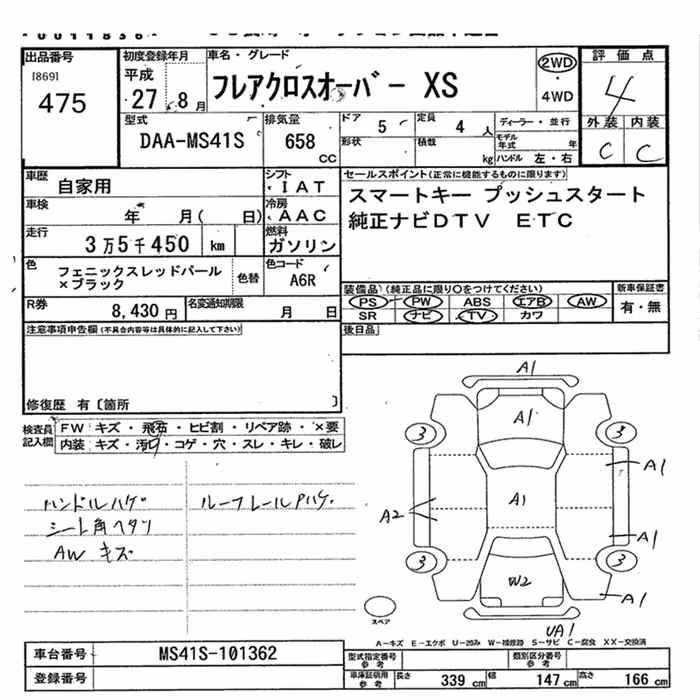 出品番号
[869]
475
初度登録年月
平成
27 . 8 月
車名・グレード
フレアクロスオーバー XS
2WD
4WD
評価点
4
外装 内装
C C
型式
DAA-MS41S
排気量
658 cc
ドア
5
定員
4 人
形状
積載
kg
ディーラー・並行
モデル年式 年
ハンドル 左・右
車歴
自家用
シフト
IAT
車検
年 月( 日)
冷房
AAC
走行
3万5千450 km
燃料
ガソリン
色
フェニックスレッドパール
×ブラック
色替
色コード
A6R
R券
8,430 円
名変通知期限
月 日
セールスポイント(正常に機能するものに限ります)
スマートキー プッシュスタート
純正ナビDTV ETC
装備品(純正品に限り○をつけてください)
PS PW ABS エアB AW
SR ナビ TV カワ
新車保証書
有・無
後日品
注意事項申告欄(不具合内容等は具体的に記入して下さい)
修復歴 有〔箇所 〕
検査員記入欄
FW キズ・飛石・ヒビ割・リペア跡・×要
内装 キズ・汚れ・コゲ・穴・スレ・キレ・破レ
ハンドルハゲ
シート角ヘタリ
AW キズ
ルーフレールPハゲ
A1
A1
3 3
A1
A2
A1
A1
3 3
W2
A1
UA1
スペア
A-キズ E-エクボ U-凹み W-補修跡 S-サビ C-腐食 XX-交換済
車台番号
MS41S-101362
登録番号
型式指定番号
参考
類別区分番号
参考
車庫証明用
参考
長さ
339 cm
幅
147 cm
高さ
166 cm